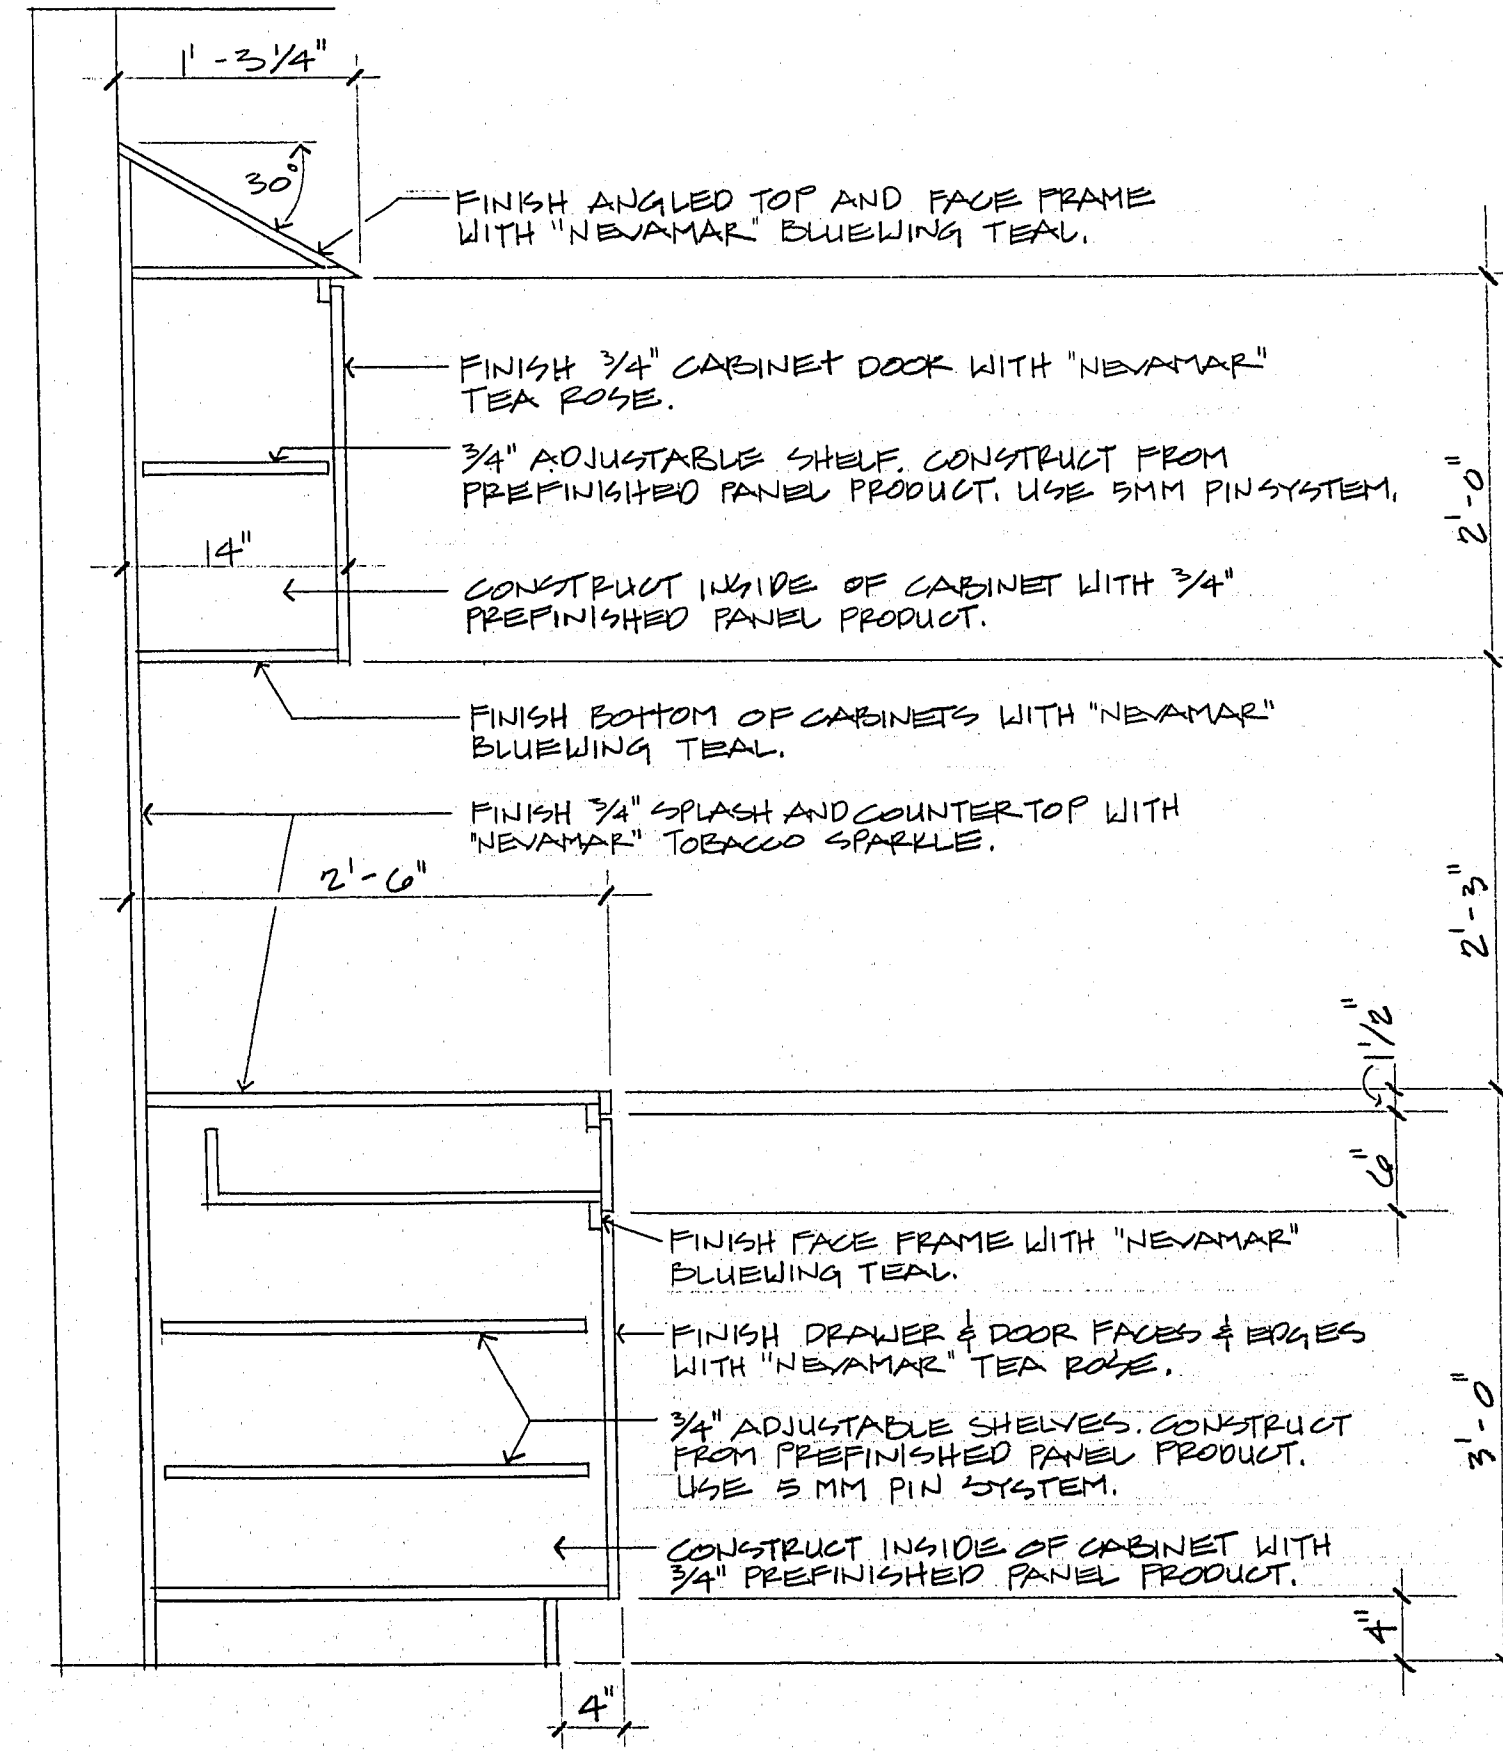 1'-3 1/4"
30°
FINISH ANGLED TOP AND FACE FRAME
WITH "NEVAMAR" BLUEWING TEAL.
FINISH 3/4" CABINET DOOR WITH "NEVAMAR"
TEA ROSE.
3/4" ADJUSTABLE SHELF. CONSTRUCT FROM
PREFINISHED PANEL PRODUCT. USE 5MM PIN SYSTEM.
2'-0"
14"
CONSTRUCT INSIDE OF CABINET WITH 3/4"
PREFINISHED PANEL PRODUCT.
FINISH BOTTOM OF CABINETS WITH "NEVAMAR"
BLUEWING TEAL.
FINISH 3/4" SPLASH AND COUNTERTOP WITH
"NEVAMAR" TOBACCO SPARKLE.
2'-6"
2'-3"
1 1/2"
6"
FINISH FACE FRAME WITH "NEVAMAR"
BLUEWING TEAL.
FINISH DRAWER & DOOR FACES & EDGES
WITH "NEVAMAR" TEA ROSE.
3/4" ADJUSTABLE SHELVES. CONSTRUCT
FROM PREFINISHED PANEL PRODUCT.
USE 5 MM PIN SYSTEM.
3'-0"
CONSTRUCT INSIDE OF CABINET WITH
3/4" PREFINISHED PANEL PRODUCT.
4"
4"